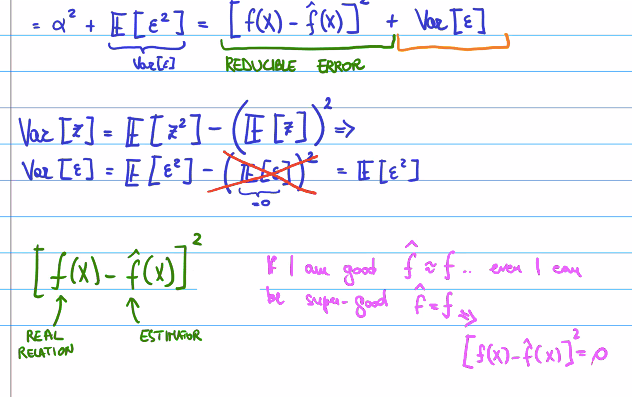 = α² + 𝔼[ε²] = [f(x) - f̂(x)]² + Var[ε]
Var[ε]
REDUCIBLE ERROR
Var[z] = 𝔼[z²] - (𝔼[z])² ⇒
Var[ε] = 𝔼[ε²] - (𝔼[ε])² = 𝔼[ε²]
=0
[f(x) - f̂(x)]²
REAL RELATION
ESTIMATOR
If I am good f̂ ≈ f.. even I can
be super-good f̂ = f ⇒
[f(x) - f̂(x)]² = 0